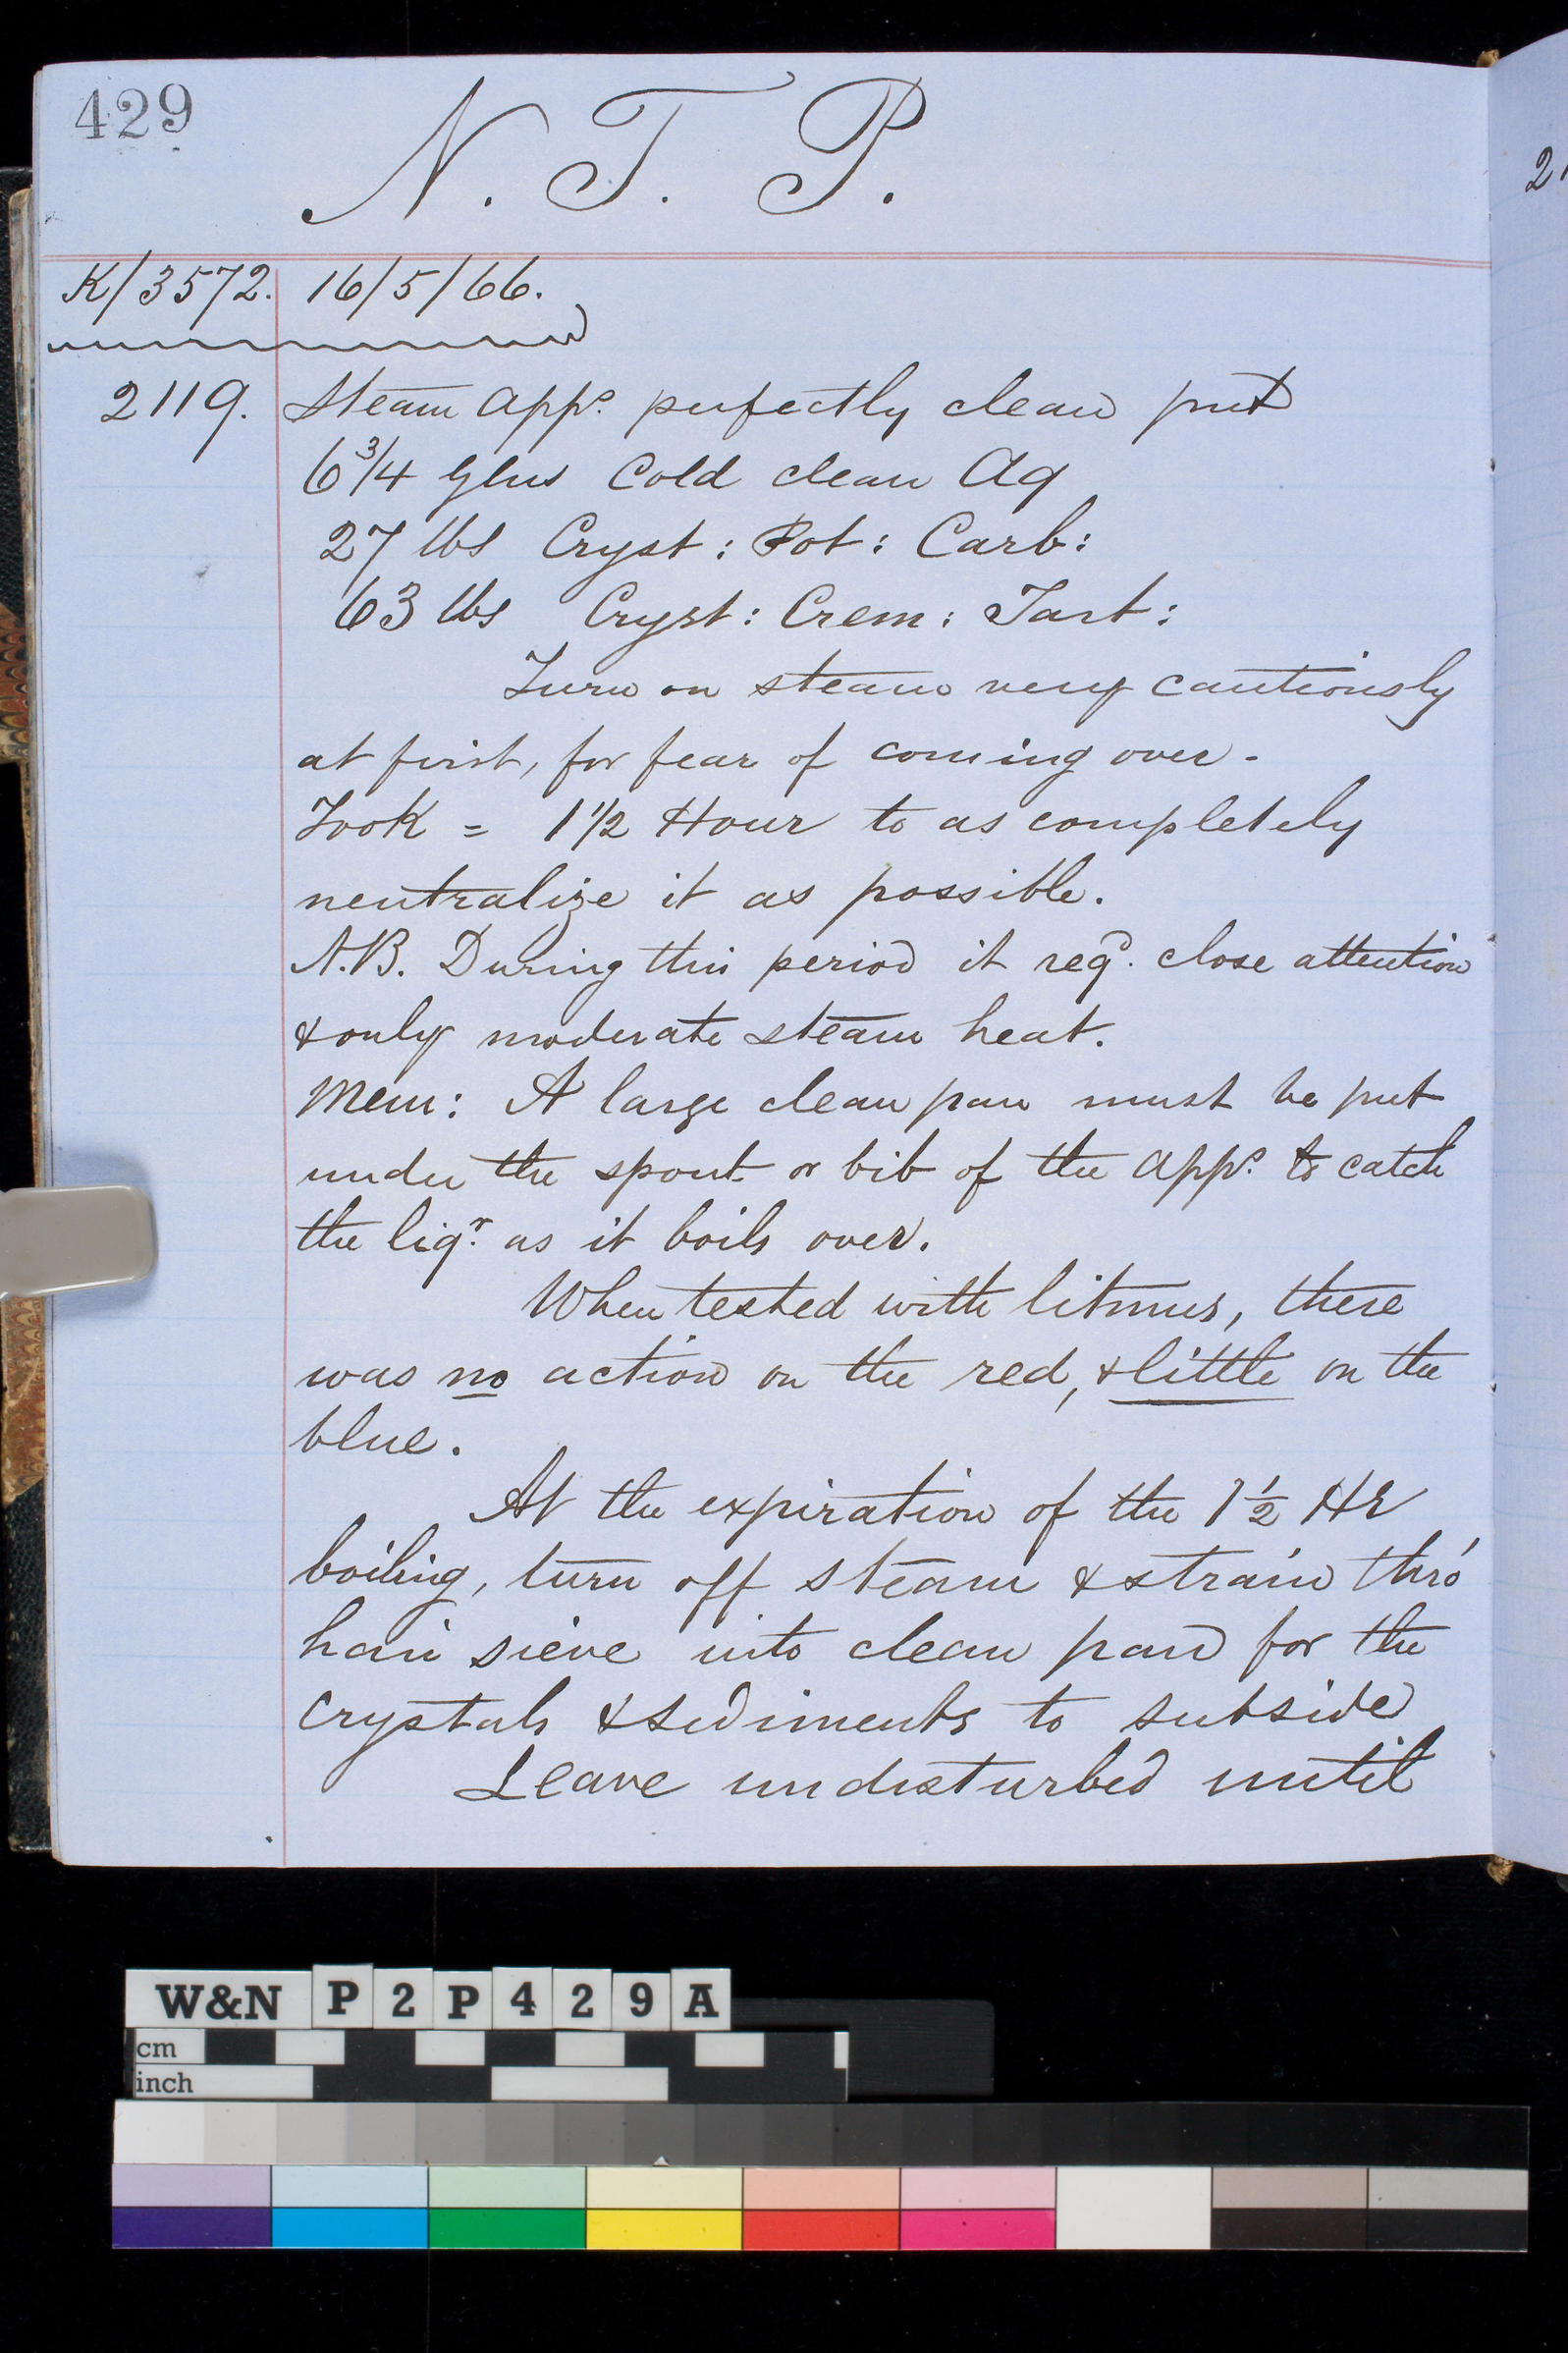 429
N. T. P.
21
K/3572. 16/5/66.
2119. Steam appˢ. perfectly clean put
6 3/4 Glns Cold clean Aq
27 lbs Cryst: Pot: Carb:
63 lbs Cryst: Crem: Tart:
Turn on steam very cautiously
at first, for fear of coming over -
Took = 1 1/2 Hour to as completely
neutralize it as possible.
N.B. During this period it reqᵈ. close attention
& only moderate steam heat.
Mem: A large clean pan must be put
under the spout or bib of the appˢ. to catch
the liqʳ. as it boils over.
When tested with litmus, there
was no action on the red, & little on the
blue.
At the expiration of the 1 1/2 Hr
boiling, turn off steam & strain thro'
hair sieve into clean pan for the
crystals & sediments to subside
Leave undisturbed until
W&N P2P429A
cm
inch